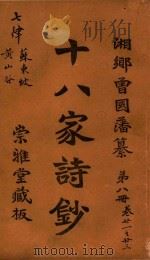 湘鄉曾國藩纂
第八冊 卷廿一
十八家詩鈔
七律 蘇東坡
黃山谷
崇雅堂藏板